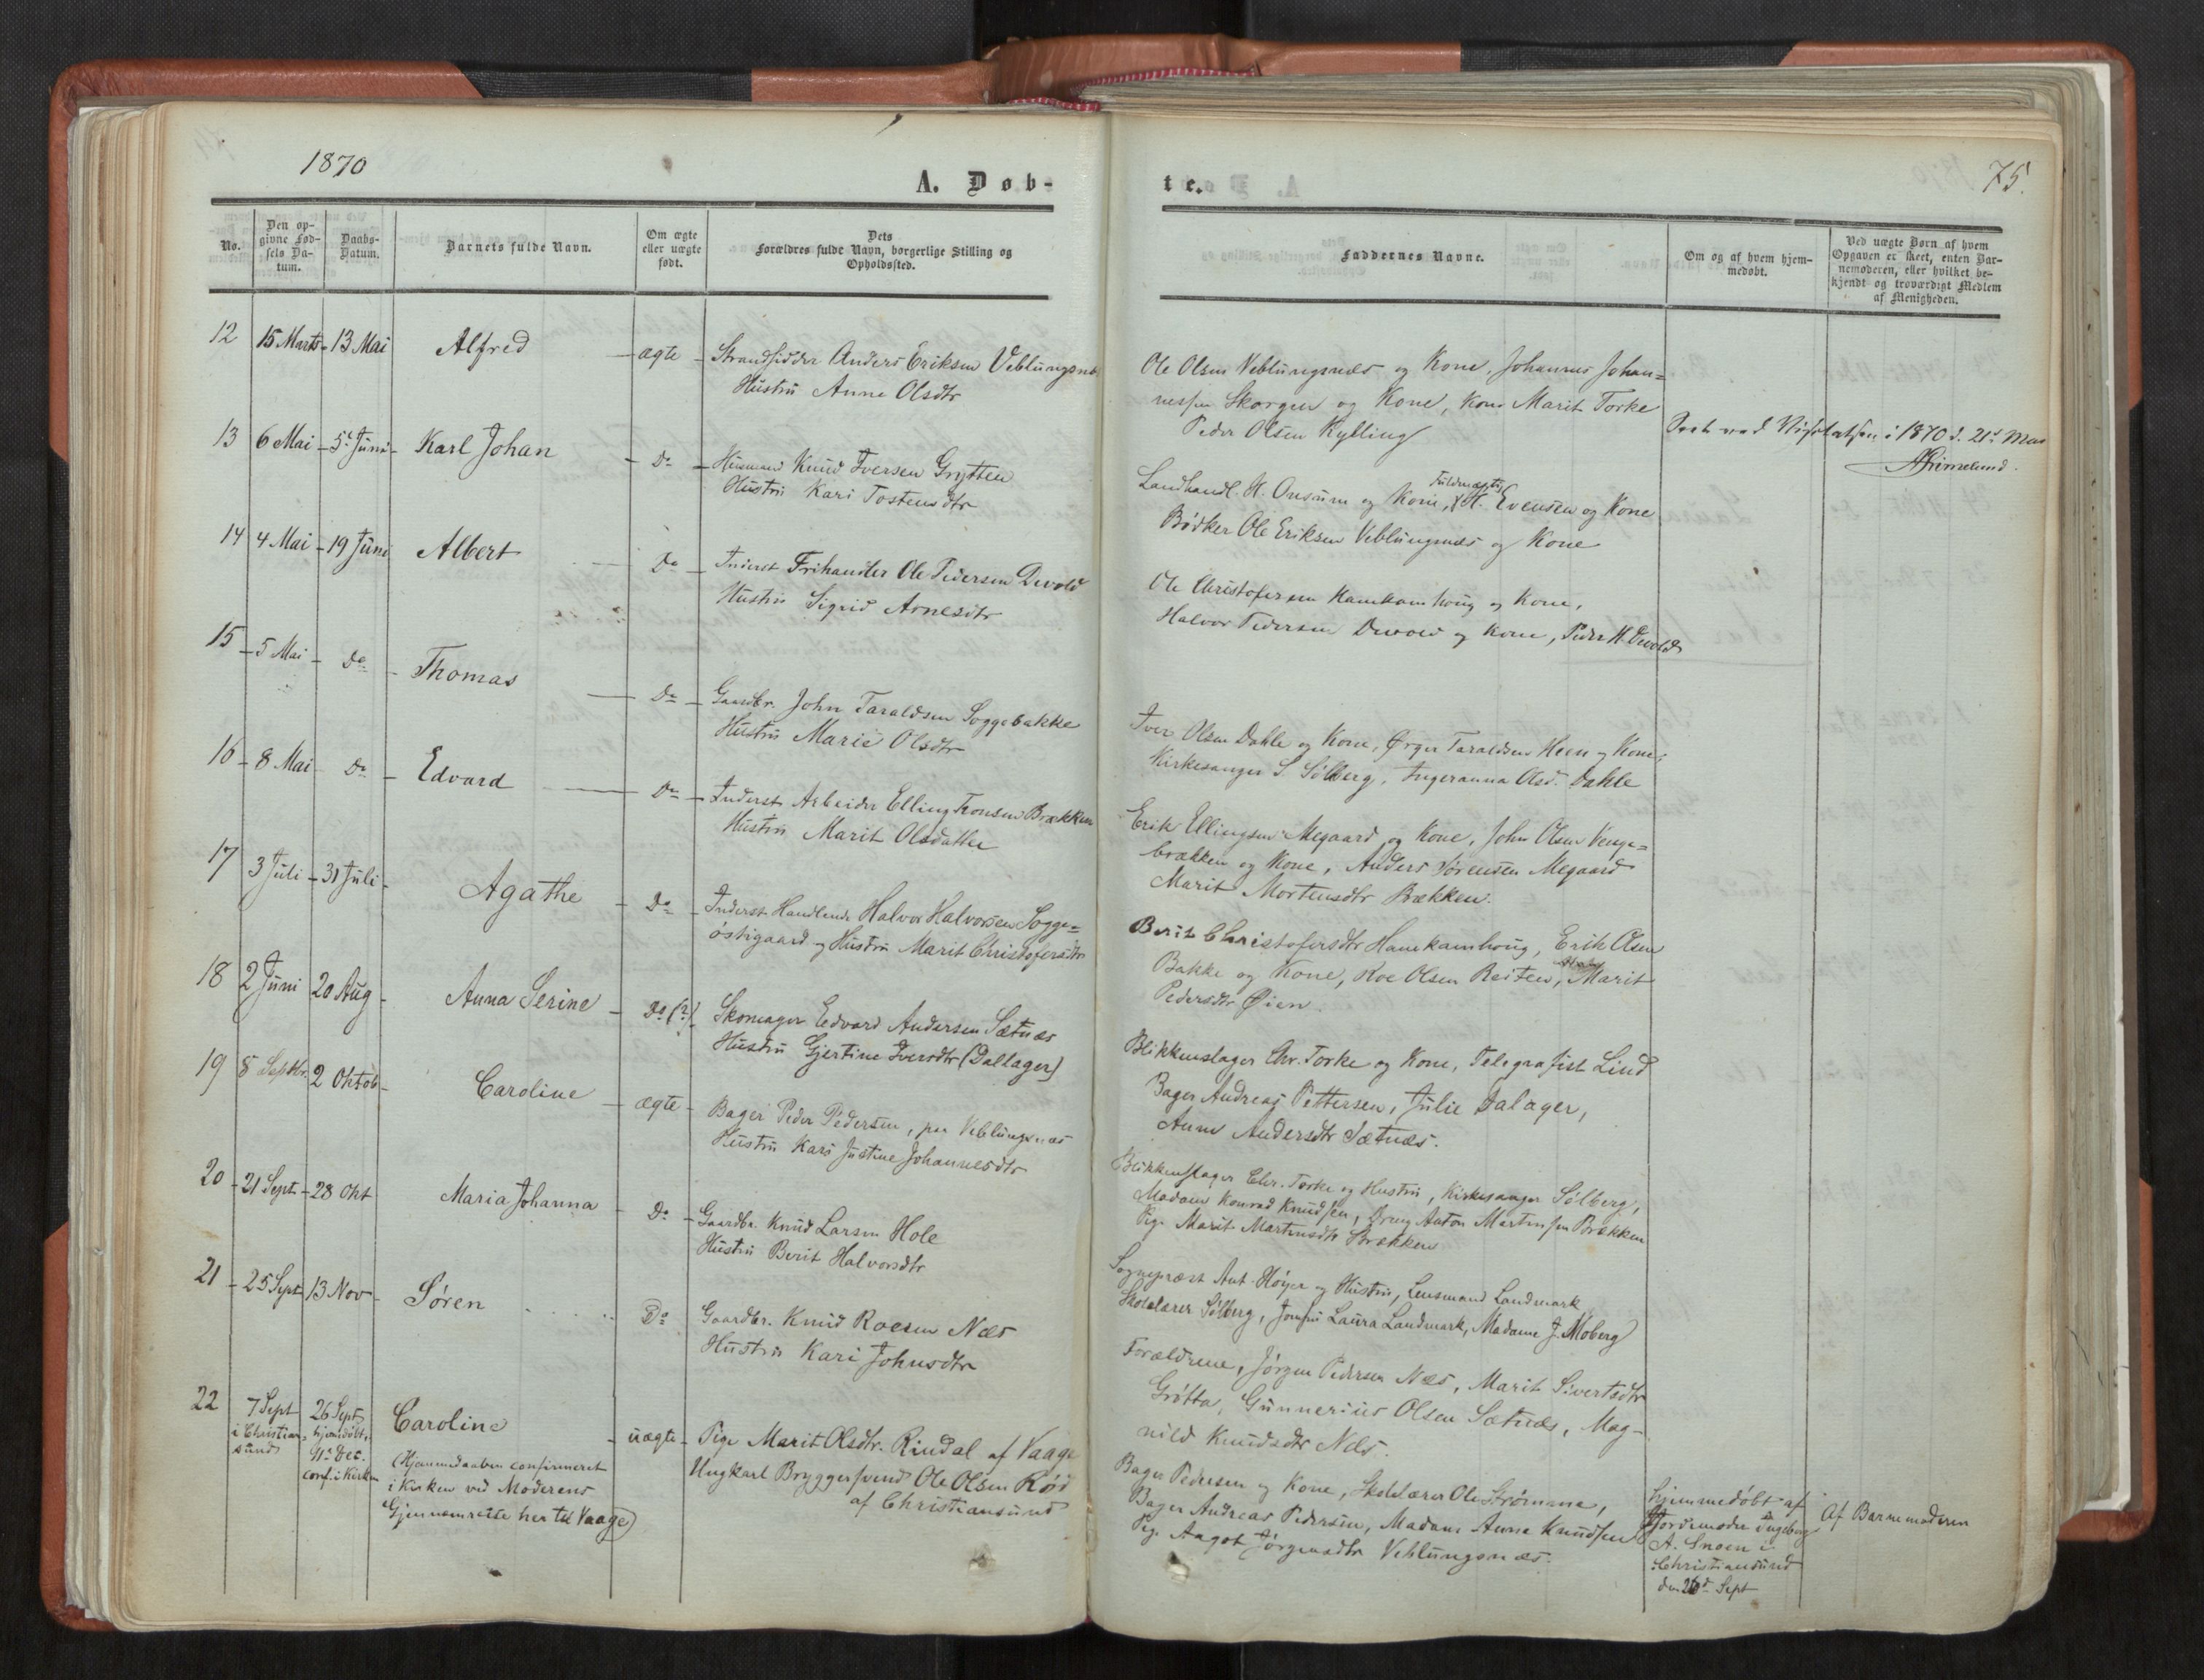 1870
A. Døb-
No.
Den op-
givne Fød-
sels Da-
tum.
Daabs-
Datum.
Barnets fulde Navn.
Om ægte
eller uægte
født.
Dets
Forældres fulde Navn, borgerlige Stilling og
Opholdssted.
12 15 Marts - 13 Mai Alfred - ægte - Strandsidder Anders Eriksen Veblungsnæs
Hustru Anne Olsdtr
13 6 Mai - 5t Juni - Karl Johan - Do - Husmand Knud Iversen Grytten
Hustru Kari Tostensdtr
14 4 Mai - 19 Juni Albert - Do - Inderst Frihandler Ole Pedersen Devold
Hustru Sigrid Arnesdtr
15 - 5 Mai - Do - Thomas - Do - Gaardbr. John Taraldsen Soggebakke
Hustru Marie Olsdtr
16 - 8 Mai - Do - Edvard - Do - Inderst Arbeider Elling Tronsen Brækken
Hustru Marit Olsdatter
17 3 Juli - 31 Juli - Agathe - Do - Inderst Handlende Halvor Halvorsen Sogge=
østigaard og Hustru Marit Christofersdtr
18 2 Juni 20 Aug - Anna Serine - Do (?) Skomager Edvard Andersen Sætnæs
Hustru Gjertine Iversdtr (Dallager)
19 8 Septbr. 2 Oktob - Caroline - ægte - Bager Peder Pedersen, paa Veblungsnæs
Hustru Kari Justine Johannesdtr
20 - 21 Sept - 28 Okt Maria Johanna - Do - Gaardbr. Knud Larsen Hole
Hustru Berit Halvorsdtr
21 - 25 Sept 13 Nov - Søren Do Gaardbr. Knud Roesen Næs
Hustru Kari Johnsdtr
22 7 Sept 26 Sept Caroline - uægte - Pige Marit Olsdtr. Rindal af Vaage
i Christian=
sund
hjemdøbt,
11te Dec.
conf. i Kirken
(Hjemmedaaben confirmeret
i Kirken ved Moderens
Gjennemreise her til Vaage)
Ungkarl Bryggersvend Ole Olsen Rød
af Christiansund
te.
75.
Faddernes Navne.
Om og af hvem hjem-
medøbt.
Ved uægte Børn af hvem
Opgaven er skeet, enten Bar-
nemoderen, eller hvilket be-
kjendt og troværdigt Medlem
af Menigheden.
Ole Olsen Veblungsnæs og Kone, Johannes Johan=
nessen Skorgen og Kone, Kone Marit Torke
Peder Olsen Kylling
Seet ved Visitatsen i 1870 d. 21d Mai
AGrimelund.
Landhandl. H. Onsum og Kone, Fuldmægtig H. Evensen og Kone
Bødker Ole Eriksen Veblungsnæs og Kone
Ole Christofersen Hanekamhoug og Kone,
Halvor Pedersen Devold og Kone, Peder H. Devold
Iver Olsen Dahle og Kone, Ørger Taraldsen Heen og Kone,
Kirkesanger S. Sølberg, Ingeranna Olsd. Dahle
Erik Ellingsen Megaard og Kone, John Olsen Venge=
brækken og Kone, Anders Sørensen Megaard
Marit Mortensdtr Brækken.
Berit Christofersdtr Hanekamhoug, Erik Olsen
Bakke og Kone, Roe Olsen Reiten, Marit
Pedersdtr Øien
Blikkenslager Chr. Torke og Kone, Telegrafist Lind
Bager Andreas Pettersen, Julie Dalager,
Anne Andersdtr Sætnæs.
Blikkenslager Chr. Torke og Hustru, Kirkesanger Sølberg,
Madam Konrad Knudsen, Dreng Anton Martinsen Brækken
Pige Marit Martinsdtr Brækken
Sognepræst Ant. Høyer og Hustru, Lensmand Landmark
Skolelærer Sølberg, Jomfru Laura Landmark, Madame J. Moberg
Forældrene, Jørgen Pedersen Næs, Marit Sivertsdtr
Grøtta, Gunnerius Olsen Sætnæs, Mag-
nild Knudsdtr Næs.
Bager Pedersen og Kone, Skolelærer Ole Strømme,
Bager Andreas Pedersen, Madam Anna Knudsen
Pige Aagot Jørgensdtr Veblungsnæs.
Hjemmedøbt af
Jordemoder Ingeborg
A. Snoen i
Christiansund
den 26d Sept
Af Barnemoderen